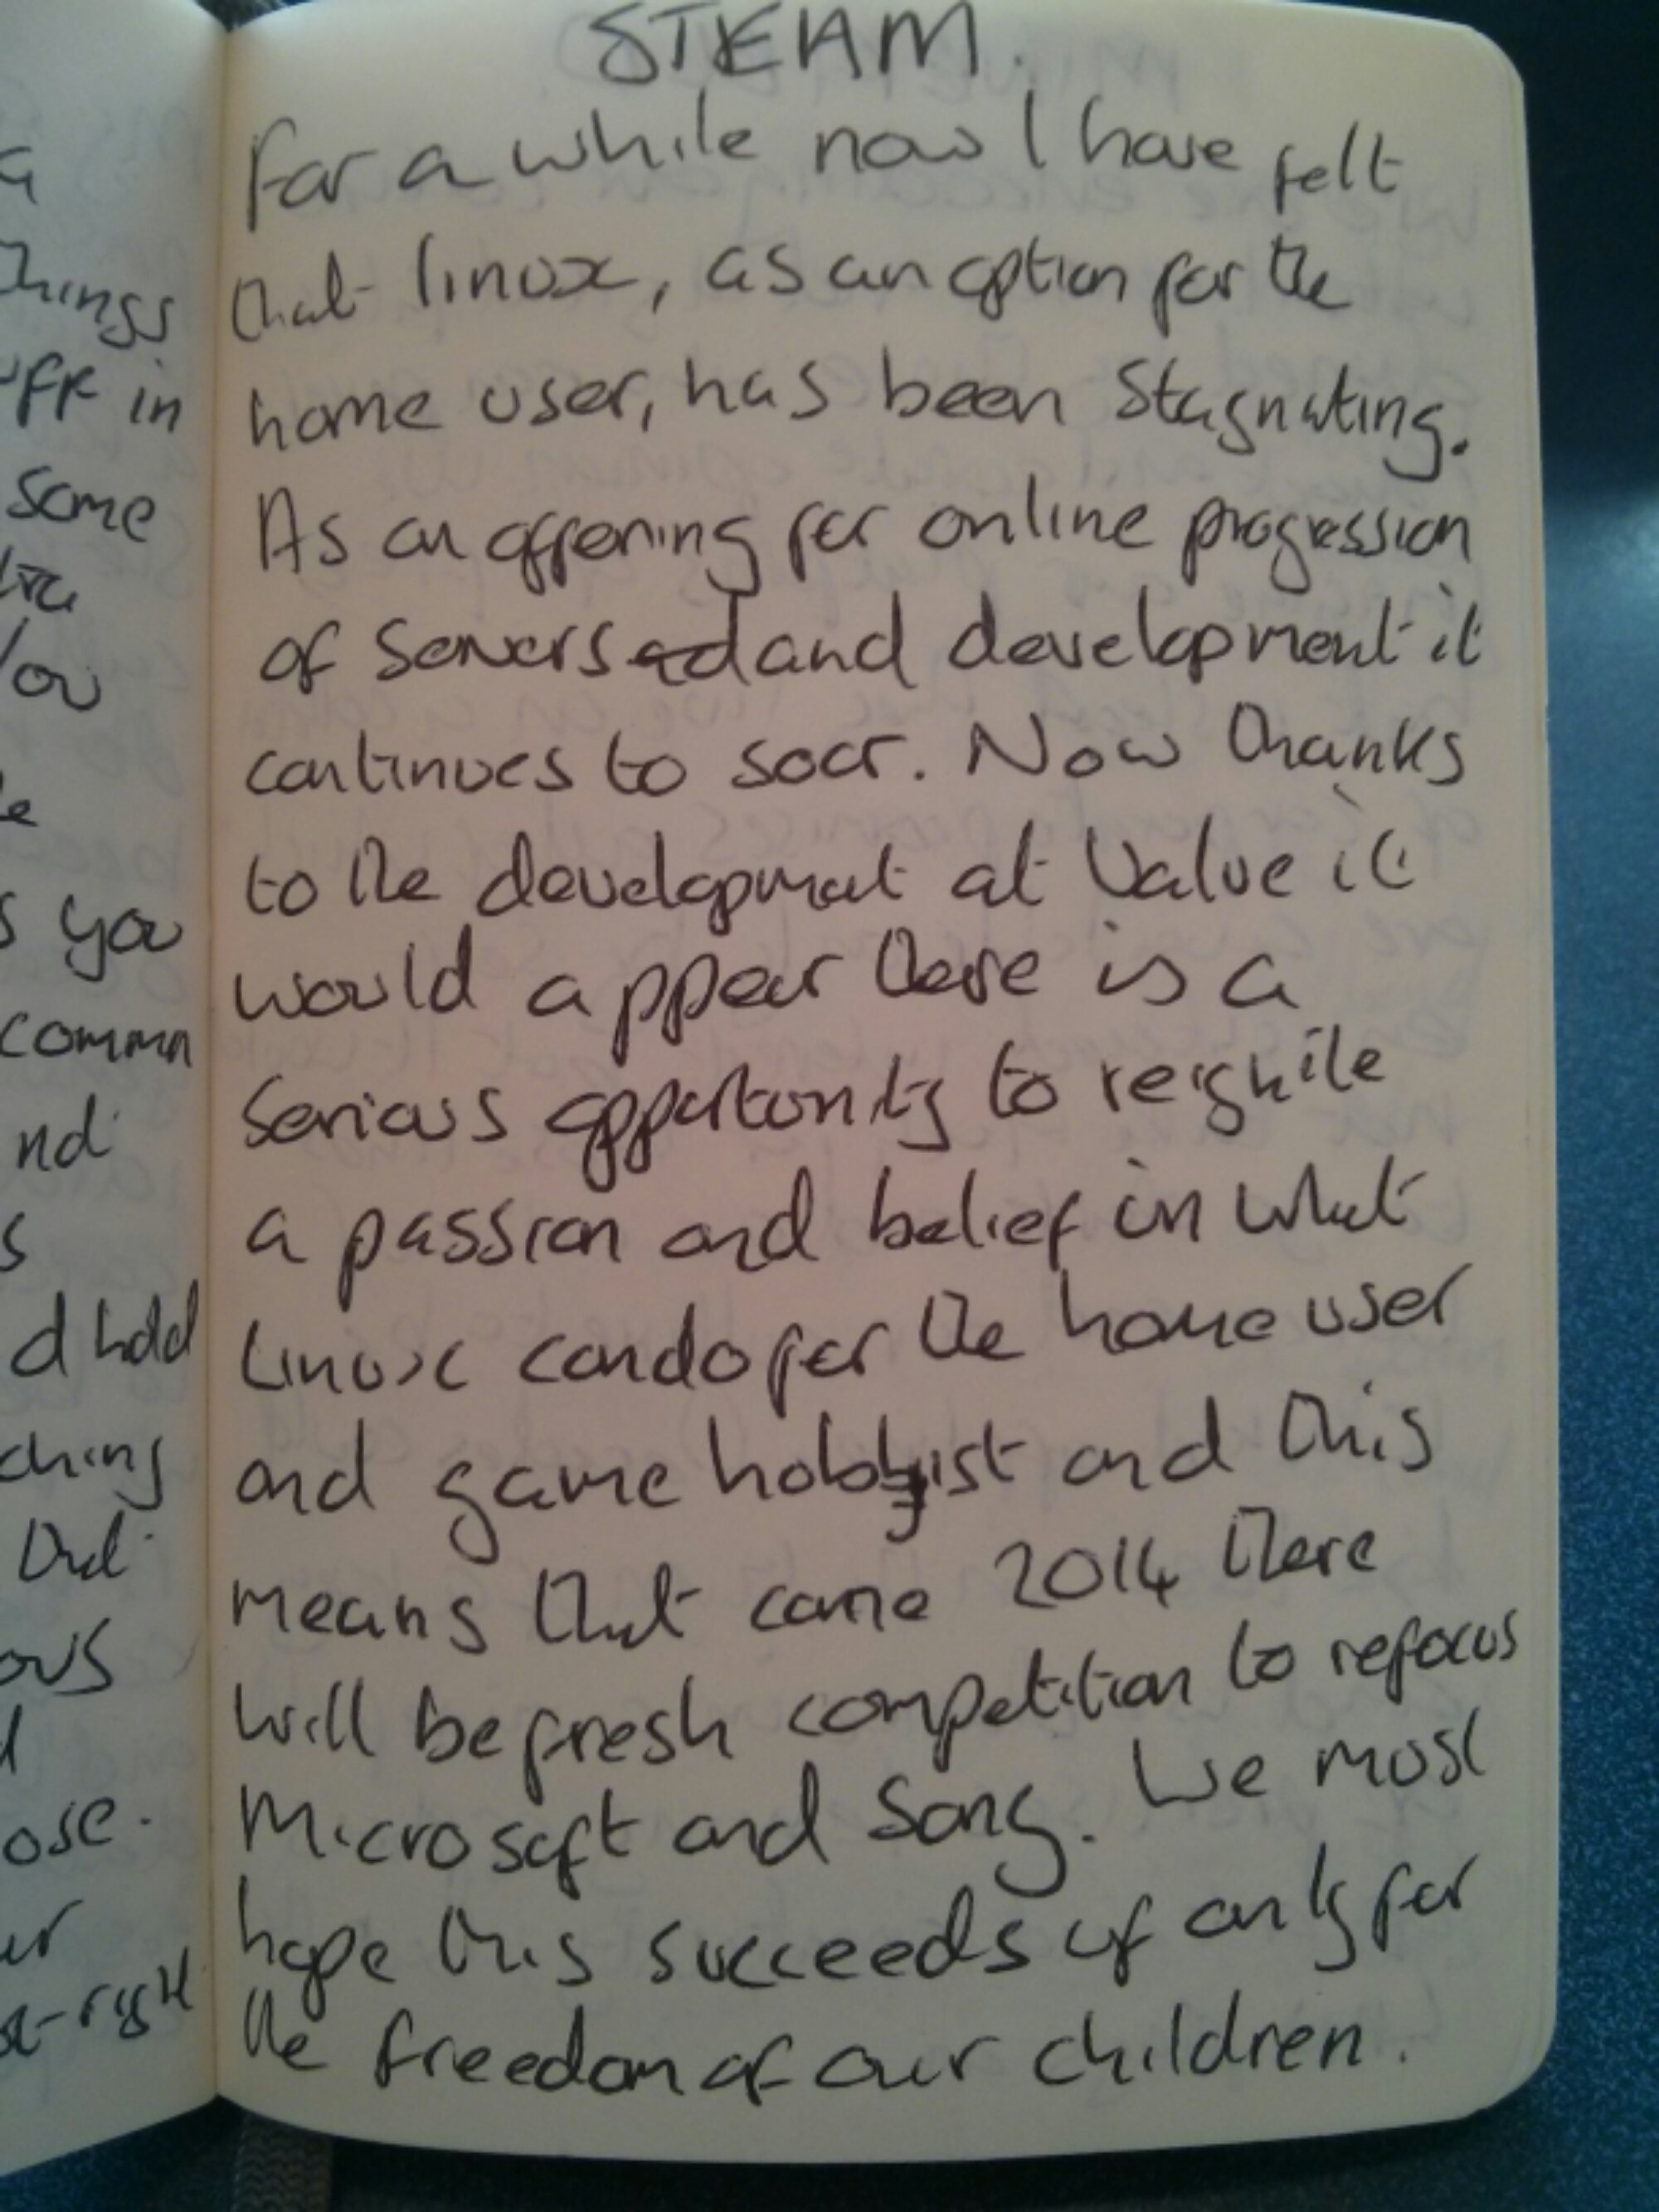 STEAM.
For a while now I have felt
that linux, as an option for the
home user, has been stagnating.
As an offering for online progression
of servers ad and development it
continues to soar. Now thanks
to the development at Valve it
would appear there is a
serious opportunity to reignite
a passion and belief in what
Linux can do for the home user
and game hobbyist and this
means that come 2014 there
will be fresh competition to refocus
Microsoft and Sony. We must
hope this succeeds if only for
the freedom of our children.
a
things
in
some
you
e
s you
comm
nd
s
d hold
ching
that
ous
ose.